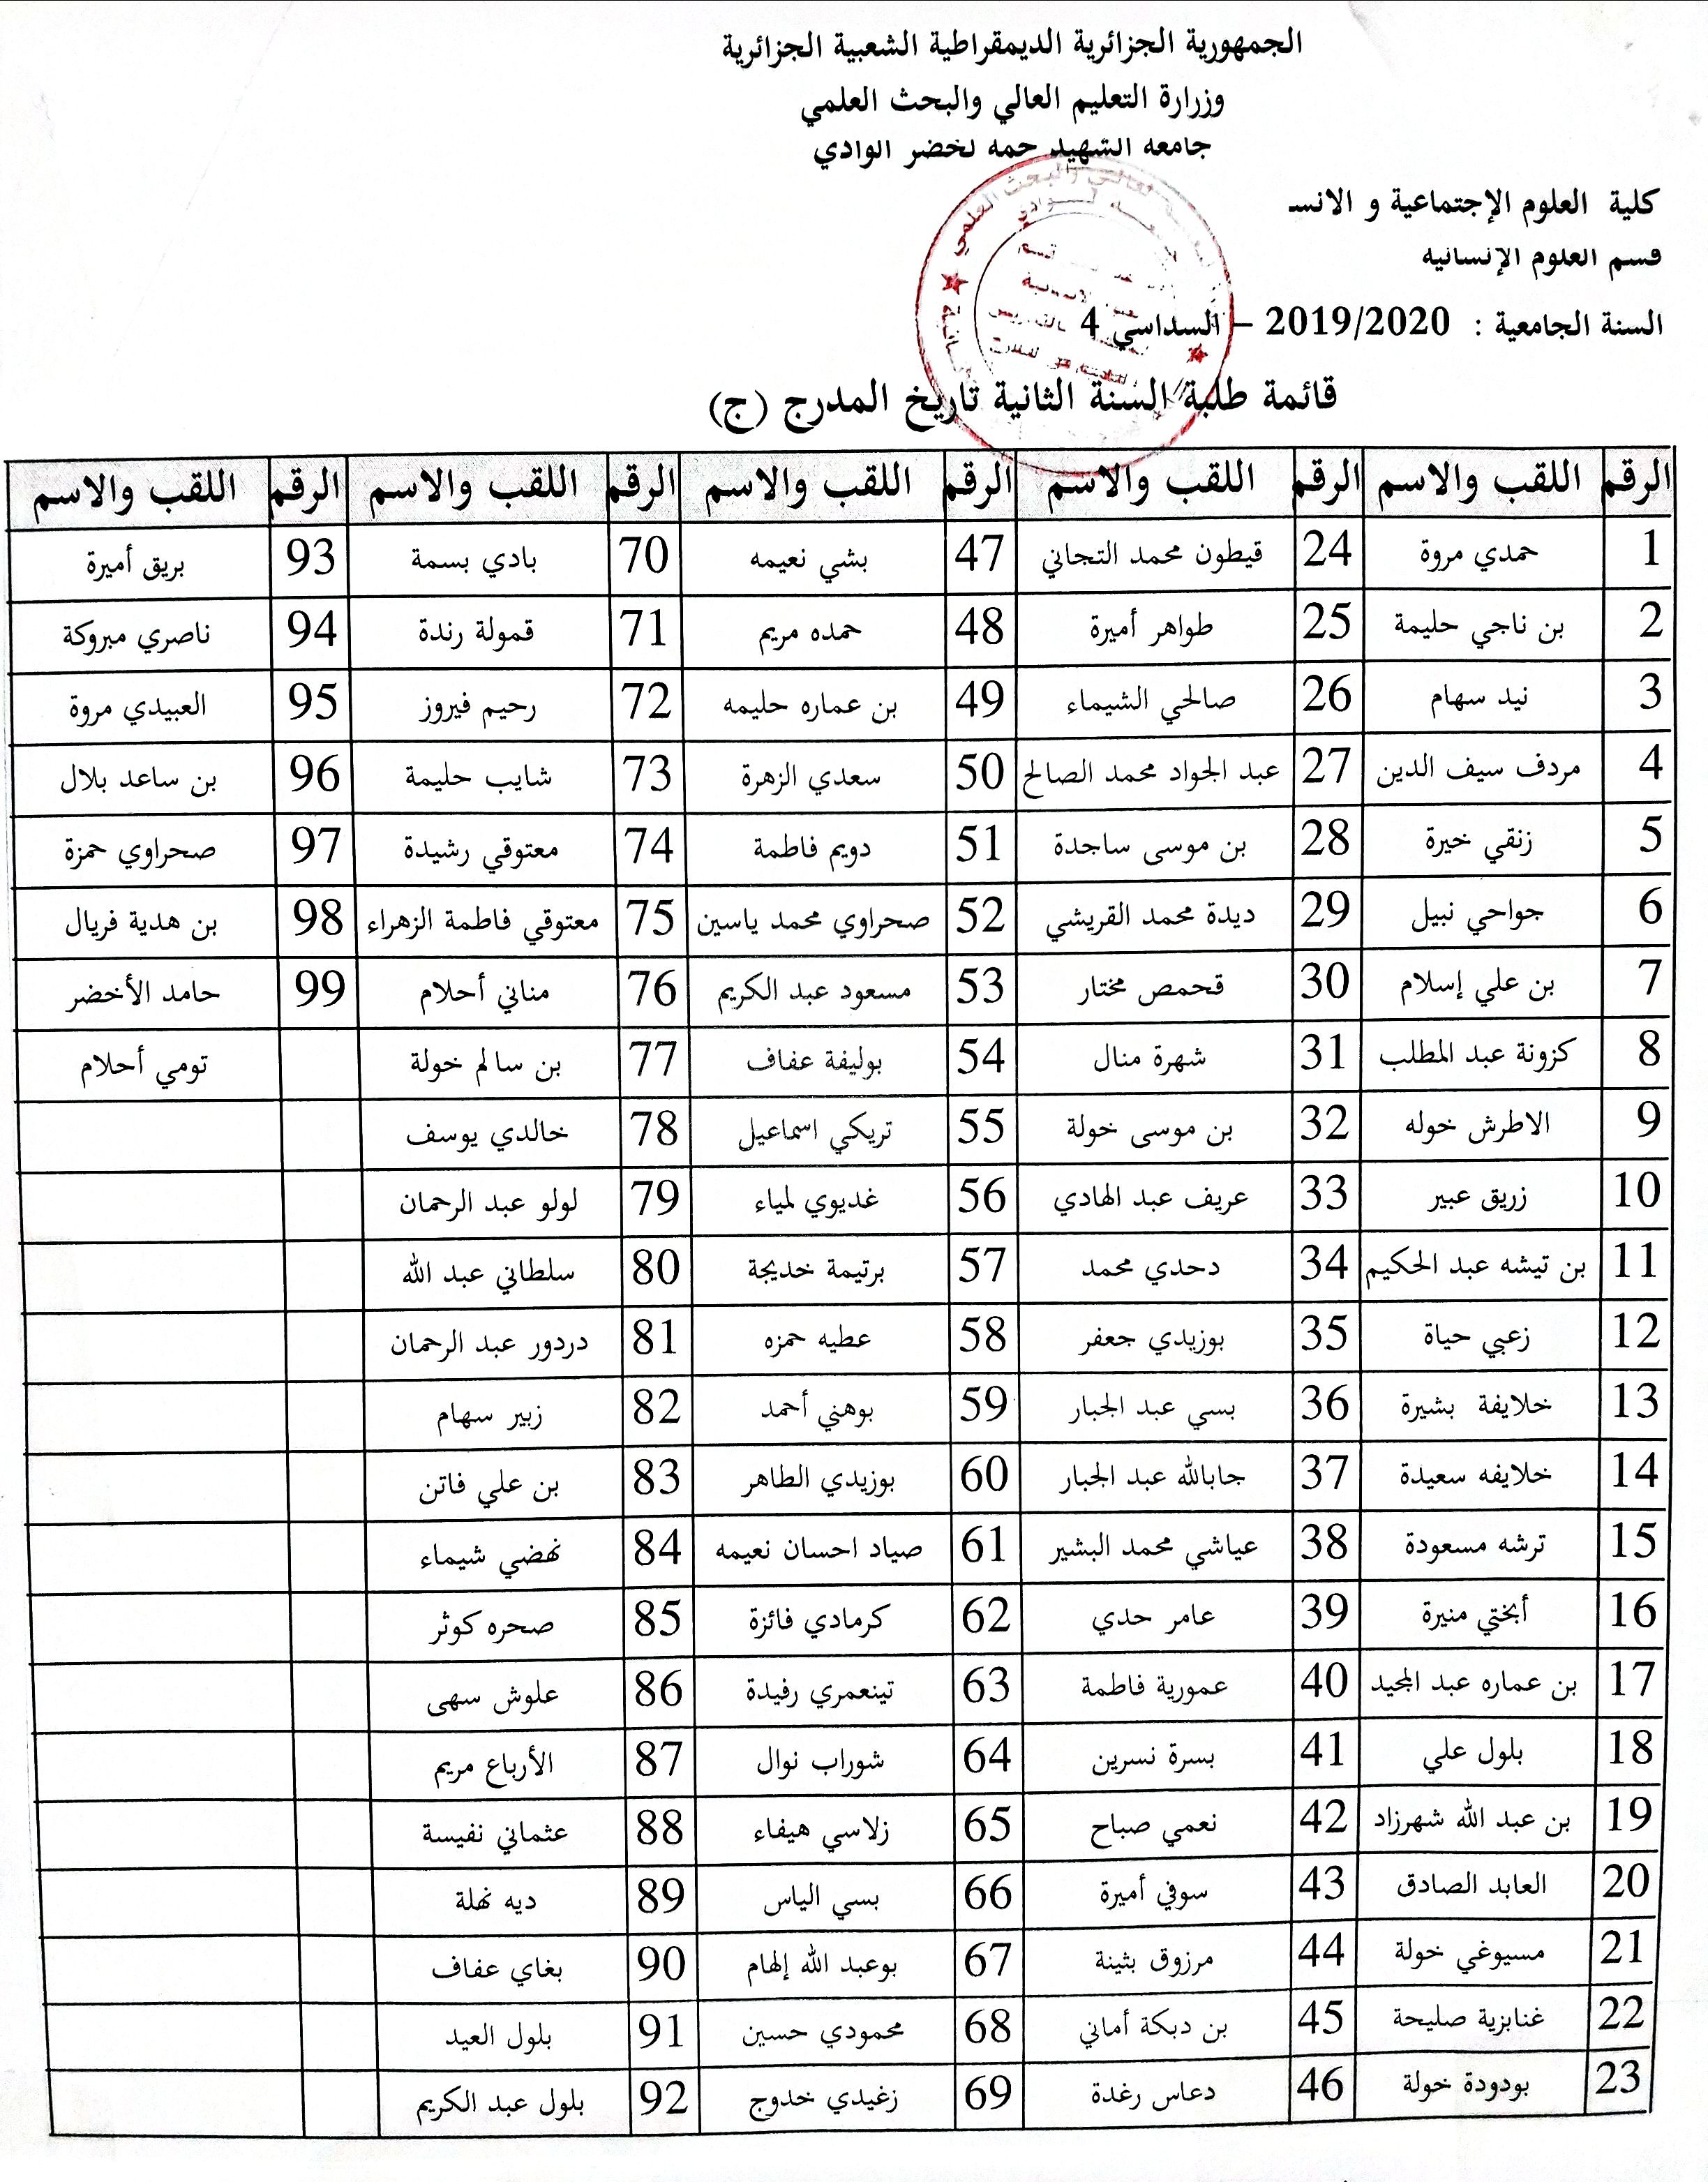 الجمهورية الجزائرية الديمقراطية الشعبية الجزائرية
وزرارة التعليم العالي والبحث العلمي
جامعه الشهيد حمه لخضر الوادي
كلية العلوم الإجتماعية و الانسـ
قسم العلوم الإنسانيه
السنة الجامعية : 2019/2020 – السداسي 4
قائمة طلبة السنة الثانية تاريخ المدرج (ج)
الرقم اللقب والاسم الرقم اللقب والاسم الرقم اللقب والاسم الرقم اللقب والاسم الرقم اللقب والاسم
1 حمدي مروة 24 قيطون محمد التجاني 47 بشي نعيمه 70 بادي بسمة 93 بريق أميرة
2 بن ناجي حليمة 25 طواهر أميرة 48 حمده مريم 71 قمولة رندة 94 ناصري مبروكة
3 نيد سهام 26 صالحي الشيماء 49 بن عماره حليمه 72 رحيم فيروز 95 العبيدي مروة
4 مردف سيف الدين 27 عبد الجواد محمد الصالح 50 سعدي الزهرة 73 شايب حليمة 96 بن ساعد بلال
5 زنقي خيرة 28 بن موسى ساجدة 51 دويم فاطمة 74 معتوقي رشيدة 97 صحراوي حمزة
6 جواحي نبيل 29 ديدة محمد القريشي 52 صحراوي محمد ياسين 75 معتوقي فاطمة الزهراء 98 بن هدية فريال
7 بن علي إسلام 30 قحمص مختار 53 مسعود عبد الكريم 76 مناني أحلام 99 حامد الأخضر
8 كزونة عبد المطلب 31 شهرة منال 54 بوليفة عفاف 77 بن سالم خولة تومي أحلام
9 الاطرش خوله 32 بن موسى خولة 55 تريكي اسماعيل 78 خالدي يوسف
10 زريق عبير 33 عريف عبد الهادي 56 غديوي لمياء 79 لولو عبد الرحمان
11 بن تيشه عبد الحكيم 34 دحدي محمد 57 برتيمة خديجة 80 سلطاني عبد الله
12 زعبي حياة 35 بوزيدي جعفر 58 عطيه حمزه 81 دردور عبد الرحمان
13 خلايفة بشيرة 36 بسي عبد الجبار 59 بوهني أحمد 82 زبير سهام
14 خلايفه سعيدة 37 جابالله عبد الجبار 60 بوزيدي الطاهر 83 بن علي فاتن
15 ترشه مسعودة 38 عياشي محمد البشير 61 صياد احسان نعيمه 84 نهضي شيماء
16 أبختي منيرة 39 عامر حدي 62 كرمادي فائزة 85 صحره كوثر
17 بن عماره عبد المجيد 40 عمورية فاطمة 63 تينعمري رفيدة 86 علوش سهى
18 بلول علي 41 بسرة نسرين 64 شوراب نوال 87 الأرباع مريم
19 بن عبد الله شهرزاد 42 نعمي صباح 65 زلاسي هيفاء 88 عثماني نفيسة
20 العابد الصادق 43 سوفي أميرة 66 بسي الياس 89 ديه نهلة
21 مسيوغي خولة 44 مرزوق بثينة 67 بوعبد الله إلهام 90 بغاي عفاف
22 غنابزية صليحة 45 بن دبكة أماني 68 محمودي حسين 91 بلول العيد
23 بودودة خولة 46 دعاس رغدة 69 زغيدي خدوج 92 بلول عبد الكريم